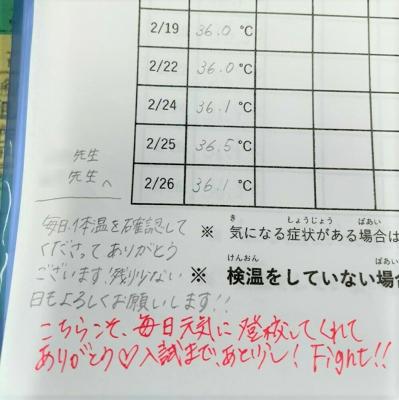 2/19 36.0 ℃
2/22 36.0 ℃
2/24 36.1 ℃
2/25 36.5 ℃
2/26 36.1 ℃
先生
先生へ
毎日、体温を確認して
くださってありがとう
ございます!残り少ない
日もよろしくお願いします!!
※ 気になる症状がある場合は
き しょうじょう ばあい
※ 検温をしていない場合
けんおん ばあい
こちらこそ、毎日元気に登校してくれて
ありがとう♡入試まで、あと少し! Fight!!